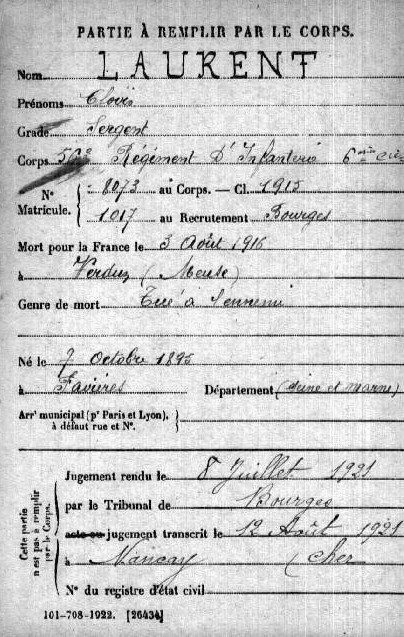 PARTIE À REMPLIR PAR LE CORPS.
Nom LAURENT
Prénoms Clovis
Grade Sergent
Corps 56e Régiment D'Infanterie 6ème Cie
N° Matricule. { 8073 au Corps. — Cl. 1915
1017 au Recrutement Bourges
Mort pour la France le 3 Août 1916
à Verdun (Meuse)
Genre de mort Tué à l'ennemi
Né le 7 Octobre 1895
à Favières Département (Seine et Marne)
Arrt municipal (pr Paris et Lyon), }
à défaut rue et N°.
Cette partie n'est pas à remplir par le Corps.
Jugement rendu le 8 Juillet 1921
par le Tribunal de Bourges
acte ou jugement transcrit le 12 Août 1921
à Nançay (Cher
N° du registre d'état civil
101-708-1922. [26434]